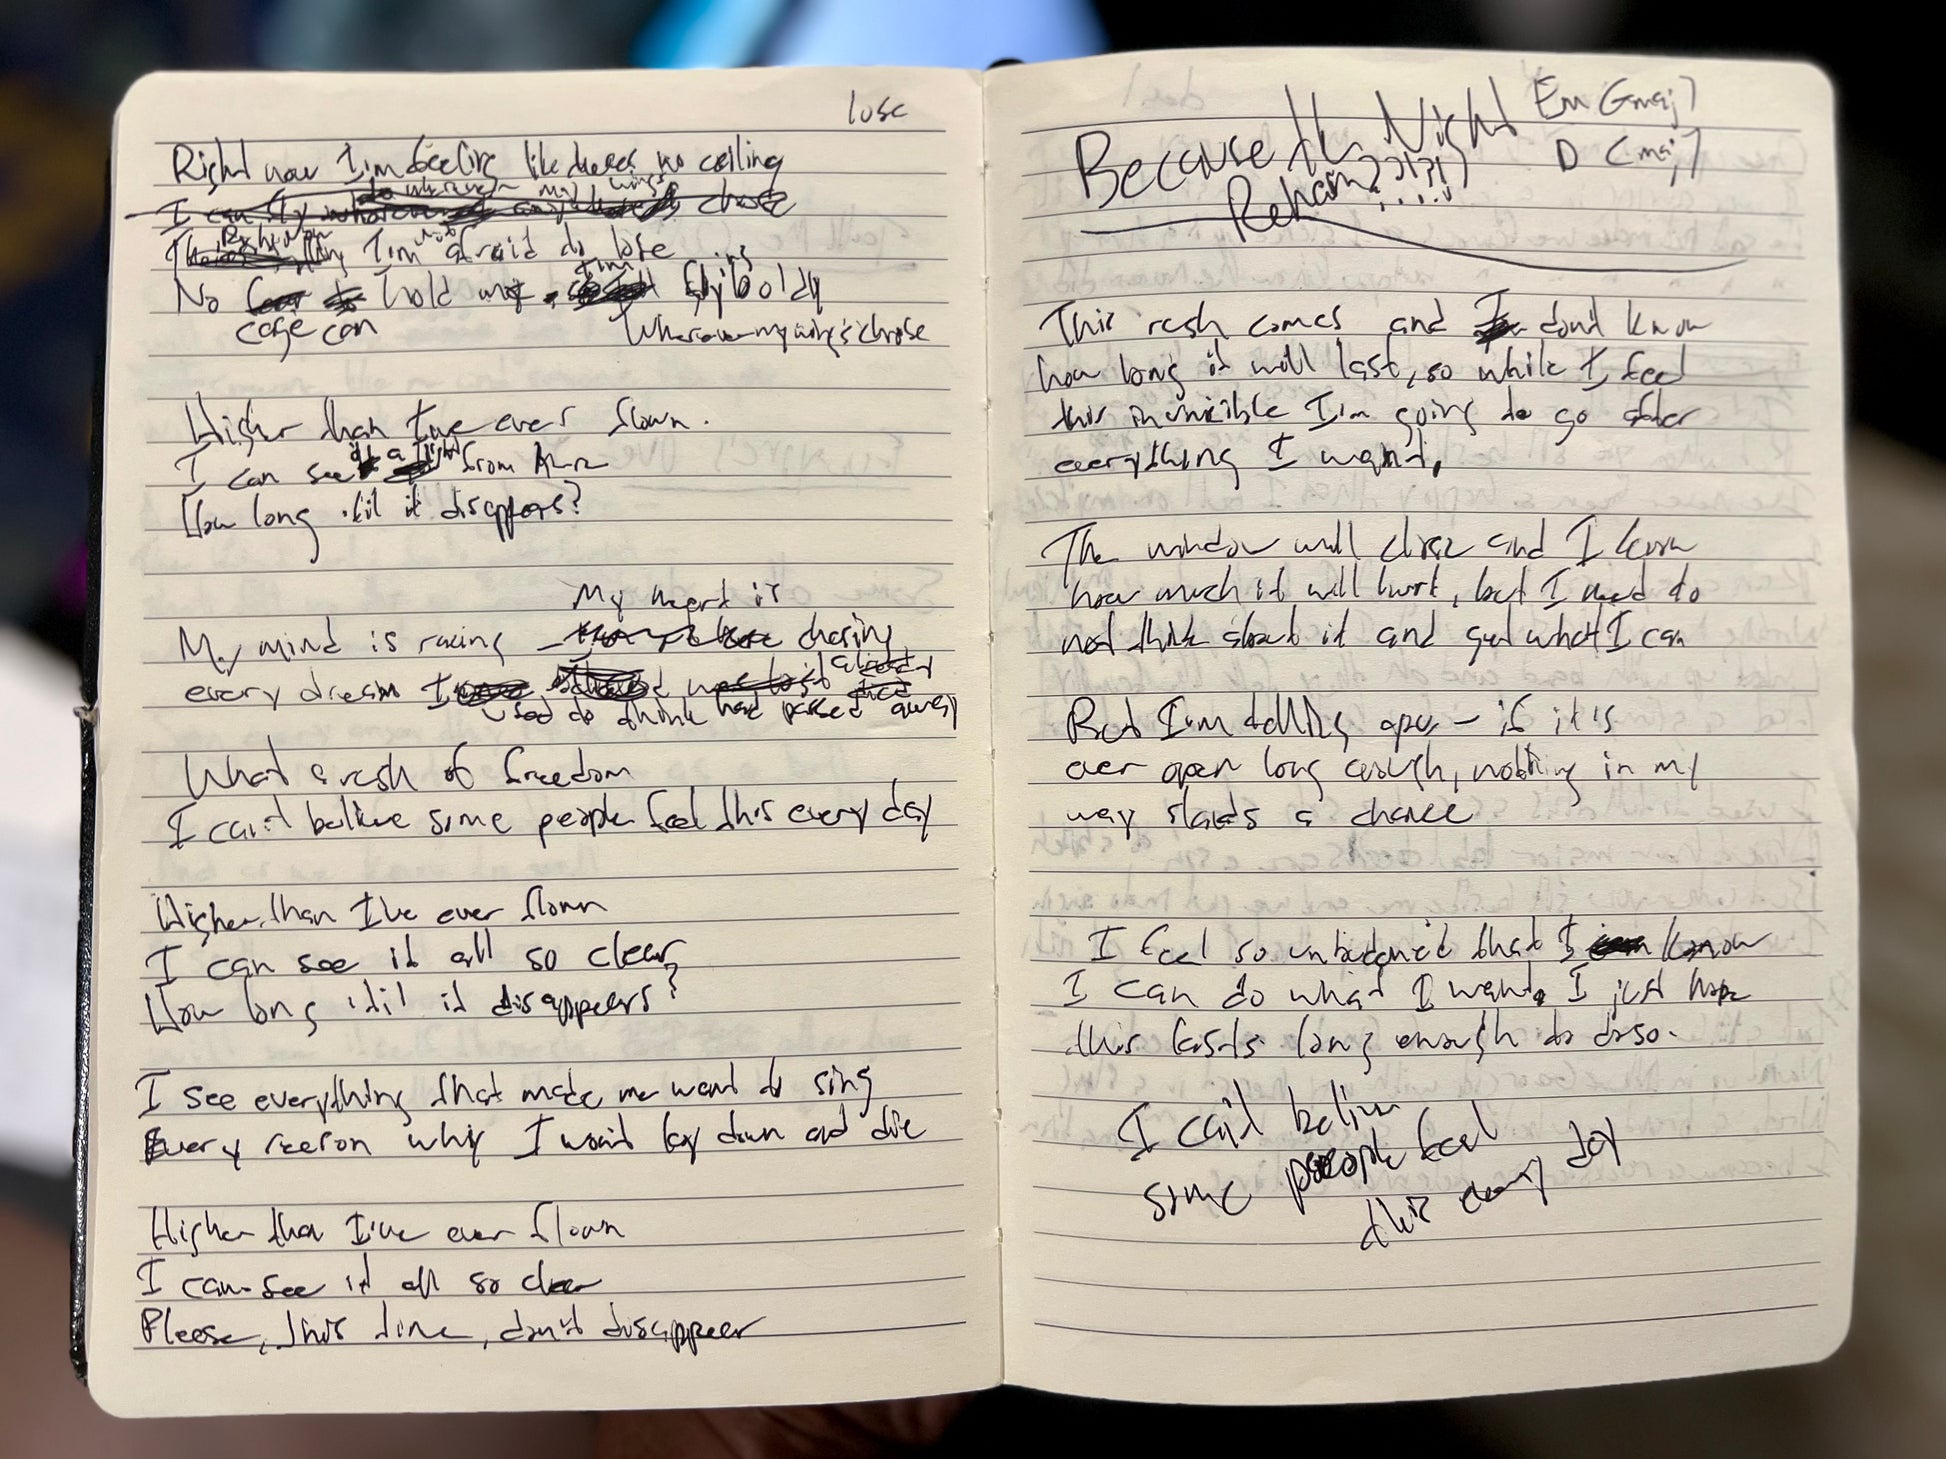 lose
Right now I'm feeling like there's no ceiling
wherever my wings
I can fly chose
Right now
The only thing I'm not afraid to lose
I'm flying
No hold me, boldly
cage can Wherever my wings chose
Higher than I've ever flown.
I can see it all from here
How long 'til it disappears?
My heart is
My mind is racing – chasing
every dream I
used to think had passed away
What a rush of freedom
I can't believe some people feel this every day
Higher than I've ever flown
I can see it all so clear
How long 'til it disappears?
I see everything that made me want to sing
Every reason why I won't lay down and die
Higher than I've ever flown
I can see it all so clear
Please, this time, don't disappear
Because the Night Em Gmaj7
Reharm???!?!? D Cmaj7
This rush comes and I don't know
how long it will last, so while I feel
this invincible I'm going to go after
everything I want.
The window will close and I know
how much it will hurt, but I need to
not think about it and get what I can
But I'm telling you – if it is
ever open long enough, nothing in my
way stands a chance
I feel so unburdened that I know
I can do what I want. I just hope
this lasts long enough to do so.
I can't believe
some people feel
this every day